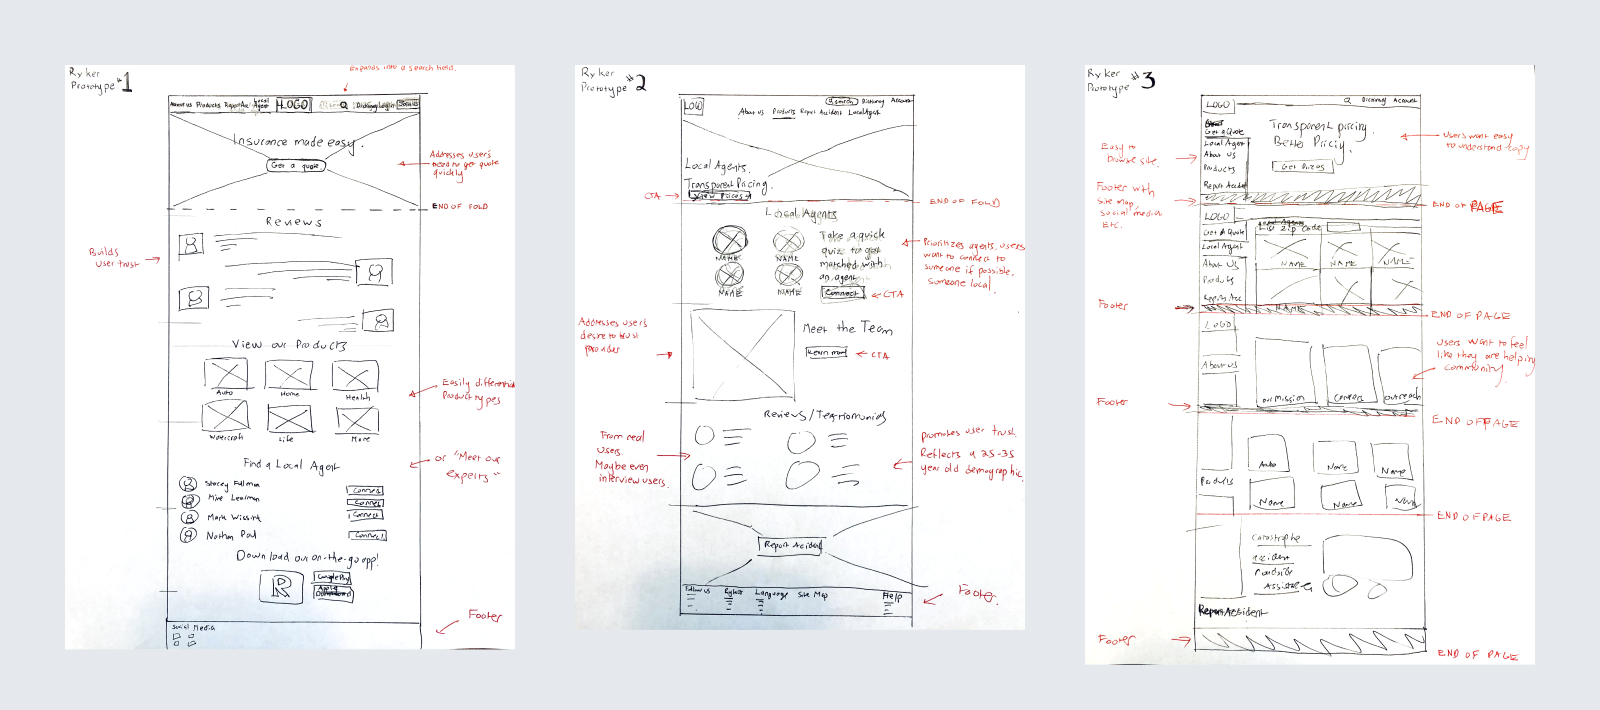 Ryker
Prototype #1
Expands into a search field.
About us Products Report Acc Local Agent LOGO Dictionary Login
Insurance made easy.
Get a quote
Addresses user's
need to get quote
quickly
END OF FOLD
Reviews
Builds
user trust
View our Products
Auto Home Health
Easily differentiate
Product types
Watercraft Life More
Find a Local Agent
or "Meet our
experts"
Stacey Fullman Connect
Mike Learman Connect
Mark Wissint Connect
Nathan Pod Connect
Download our on-the-go app!
R
Google Play
Footer
Social Media
Ryker
Prototype #2
LOGO
Search Dictionary Account
About us Products Report Accident Local Agent
Local Agents.
Transparent Pricing.
CTA
View Prices
END OF FOLD
Local Agents
NAME NAME
NAME NAME
Take a quick
quiz to get
matched with
an agent
Connect
CTA
Prioritizes agents, users
want to connect to
someone if possible.
someone local.
Addresses user's
desire to trust
provider
Meet the Team
Learn more
CTA
Reviews/Testimonials
From real
users.
Maybe even
interview users.
promotes user trust.
Reflects a 25-35
year old demographic.
Report Accident
Follow us Ryker Language Site Map Help
Footer.
Ryker
Prototype #3
LOGO
Dictionary Account
Get a Quote
Local Agent
About Us
Products
Report Accident
Transparent pricing.
Better Pricing.
Get Prices
Users want easy
to understand copy
Easy to
browse site.
Footer with
site map,
social media
Etc.
END OF PAGE
LOGO
Get a Quote
Local Agent
About Us
Products
Report Acc
Local Agents
List Zip Code
NAME NAME NAME
NAME
Footer
END OF PAGE
LOGO
About us
Our Mission Careers Outreach
Users want to feel
like they are helping
community.
Footer
END OF PAGE
Products
Auto Name Name
Name Name Name
END OF PAGE
Catastrophe
accident
roadside
Assistance
Report Accident
Footer
END OF PAGE